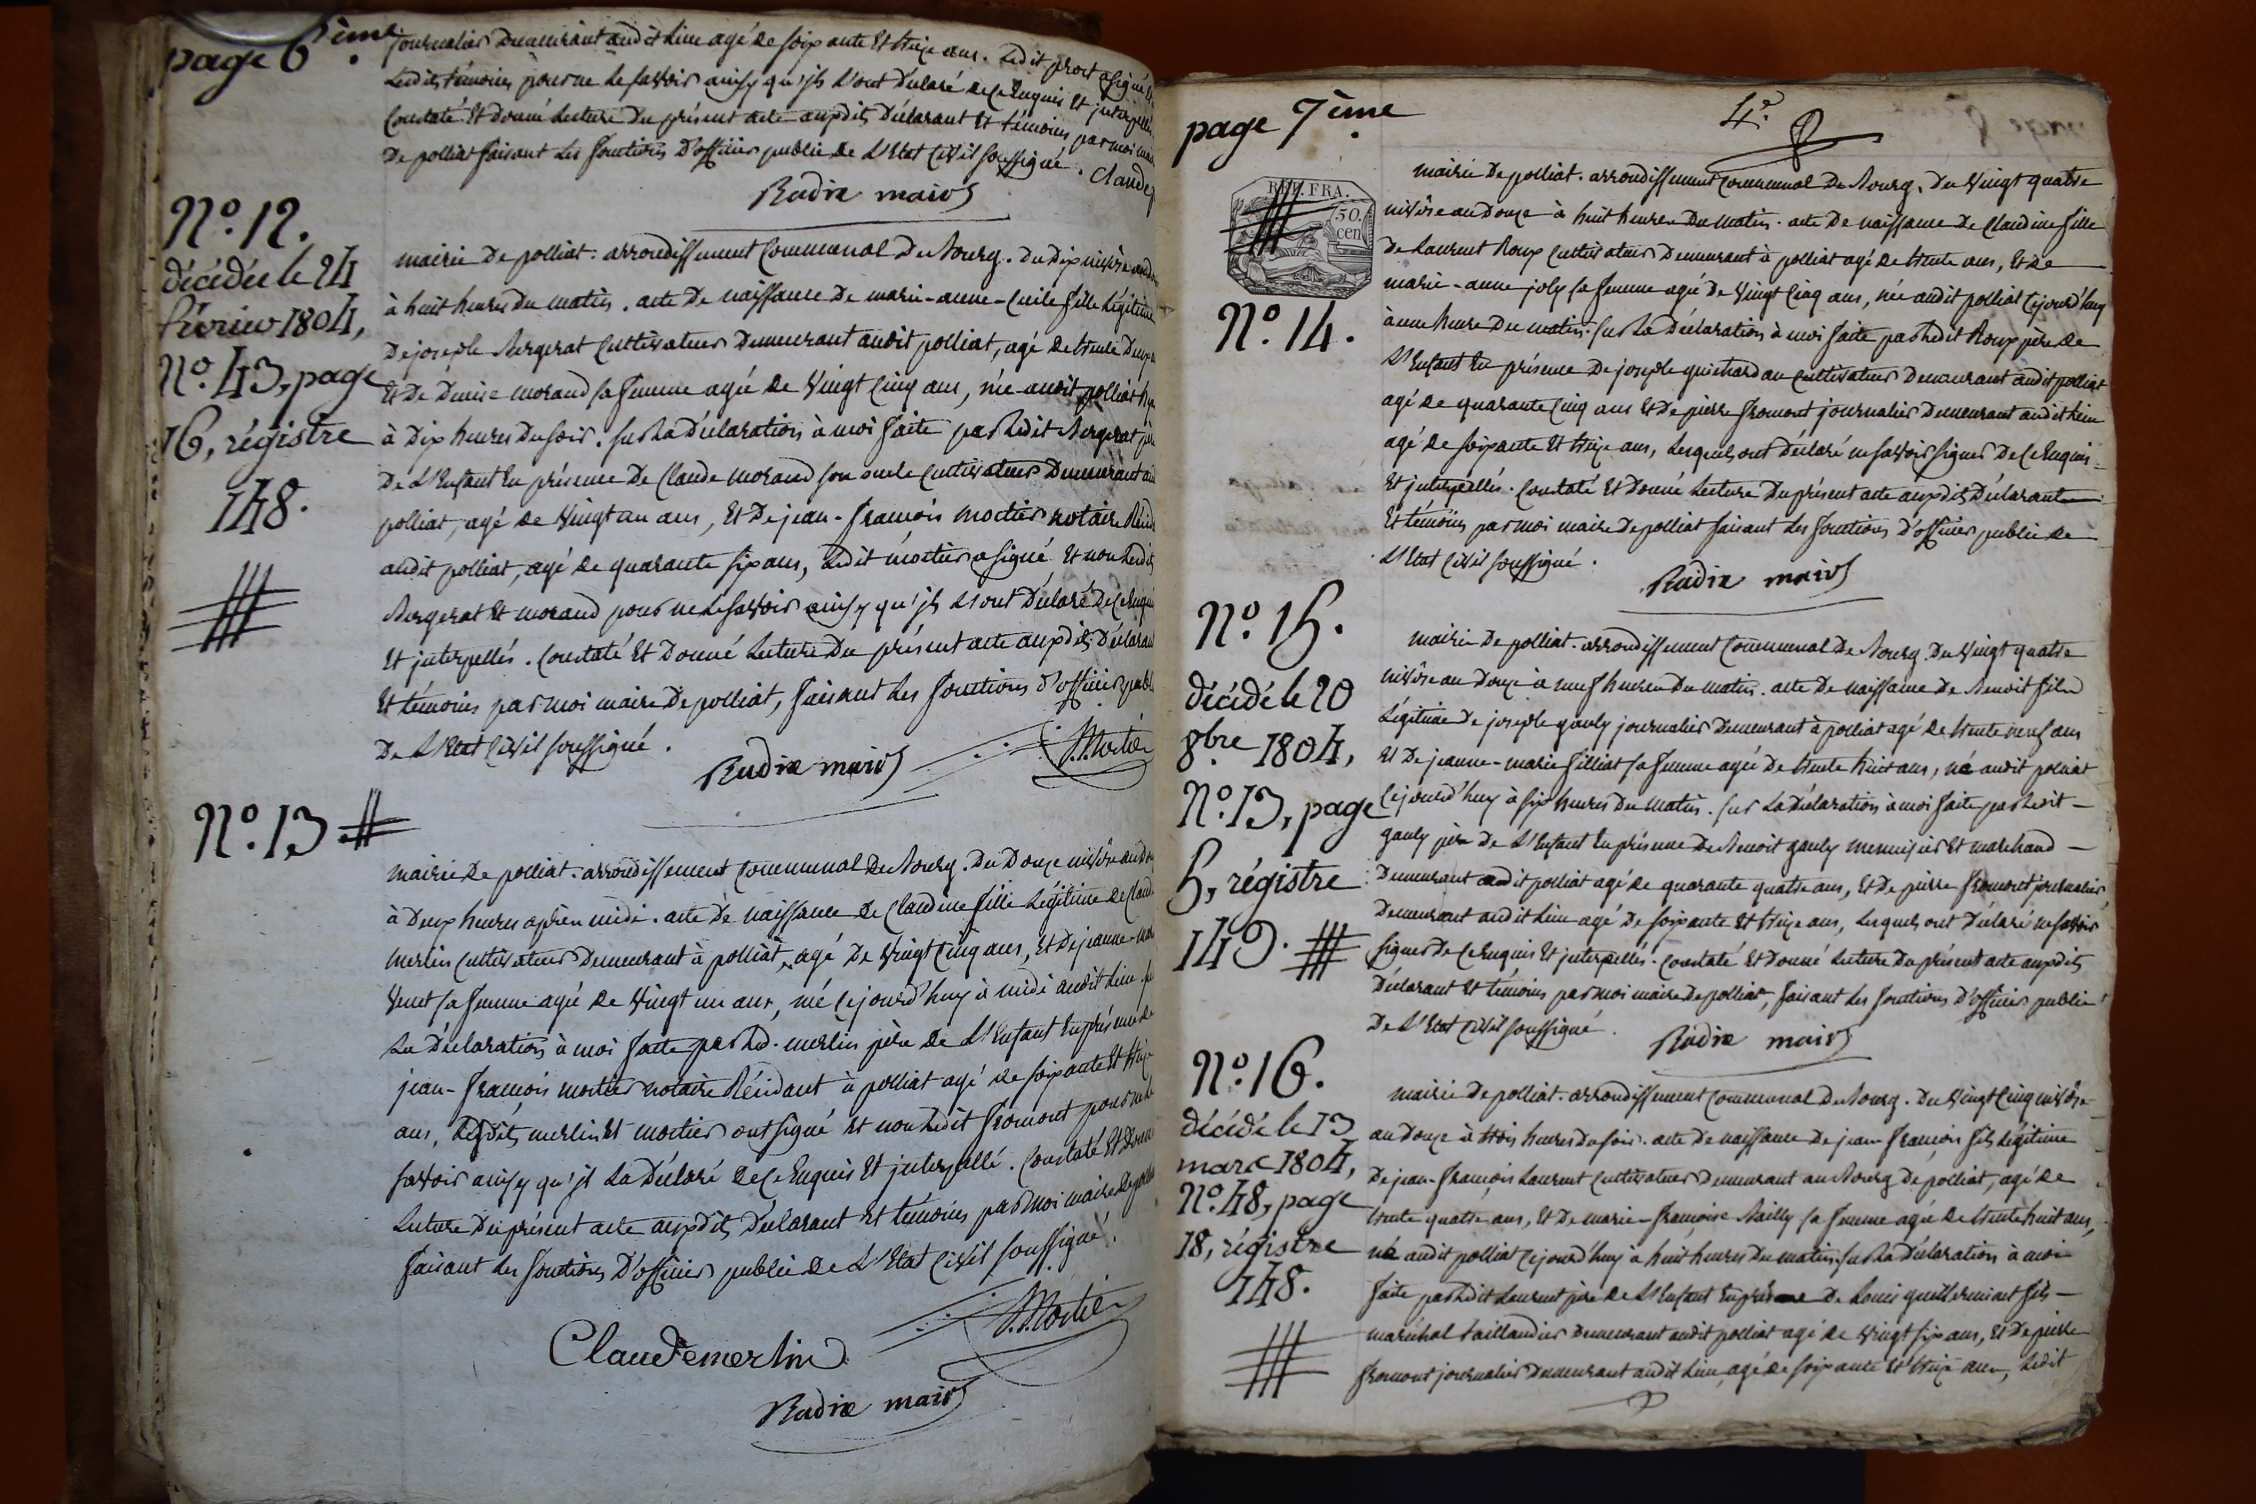 page 6ème.
journalier demeurant audit lieu agé de soixante et treize ans. Ledit prost a signé
Lesdits témoins pour ne le savoir ainsy qu'ils l'ont déclaré de ce enquis et interpellés
Constaté et donné lecture du présent acte auxdits déclarant et témoins par moi maire
de polliat faisant les fonctions d'officier public de l'Etat Civil soussigné. Claude
Rudix maire
N.º 12.
décédée le 24
février 1804,
N.º 43, page
16, régistre
148.
mairie de polliat. arrondissement Communal de Bourg. du dix nivôse an
à huit heures du matin. acte de naissance de marie-anne-Cécile fille Légitime
de joseph Bergerat Cultivateur demeurant audit polliat, agé de trente deux
Et de denise morand sa femme agée de vingt Cinq ans, née audit polliat
à dix heures du soir. sur la déclaration à moi faite par ledit Bergerat père
de L'Enfant En présence de Claude morand son oncle Cultivateur demeurant
polliat, agé de vingt un ans, Et de jean-françois mortier notaire
audit polliat, agé de quarante six ans, Ledit mortier a signé Et non Lesdits
Bergerat Et morand pour ne le savoir ainsy qu'ils l'ont déclaré de ce enquis
Et interpellés. Constaté Et donné Lecture du présent acte auxdits déclarant
Et témoins par moi maire de polliat, faisant Les fonctions d'officier public
de L'Etat Civil soussigné.
Rudix maire
Mortier
N.º 13
mairie de polliat. arrondissement Communal de Bourg. du douze nivôse an
à deux heures après midi. acte de naissance de Claudine fille Légitime de Claude
merlin Cultivateur demeurant à polliat, agé de vingt Cinq ans, Et de jeanne-
Venet sa femme agée de vingt un ans, née Cejourd'huy à midi audit lieu
La déclaration à moi faite par led. merlin père de L'Enfant En présence de
jean-françois mortier notaire Résidant à polliat agé de soixante Et treize
ans, Lesdits merlin Et mortier ont signé Et non Ledit fromont pour ne le
savoir ainsy qu'il La déclaré de ce Enquis Et interpellé. Constaté Et donné
Lecture du présent acte auxdits déclarant et témoins par moi maire de polliat
faisant Les fonctions d'officier public de L'Etat Civil soussigné.
Mortier
Claude merlin
Rudix maire
page 7ème
4.e
REP. FRA.
50.
cen
N.º 14.
mairie de polliat. arrondissement Communal de Bourg. du vingt quatre
nivôse an douze à huit heures du matin. acte de naissance de Claudine fille
de Laurent Roux Cultivateur demeurant à polliat agé de trente ans, Et de
marie-anne joly sa femme agée de vingt Cinq ans, née audit polliat Cejourd'huy
à une heure du matin. sur La déclaration à moi faite par Ledit Roux père de
L'Enfant En présence de joseph guichardan Cultivateur demeurant audit polliat
agé de quarante Cinq ans Et de pierre fromont journalier demeurant audit lieu
agé de soixante Et treize ans, Lesquels ont déclaré ne savoir signer de ce Enquis
Et interpellés. Constaté Et donné Lecture du présent acte auxdits déclarant
Et témoins par moi maire de polliat faisant Les fonctions d'officier public de
L'Etat Civil soussigné.
Rudix maire
N.º 15.
décédé le 20
8.bre 1804,
N.º 13, page
5, régistre
149.
mairie de polliat. arrondissement Communal de Bourg. du vingt quatre
nivôse an douze à neuf heures du matin. acte de naissance de Benoit fils
Légitime de joseph gauly journalier demeurant à polliat agé de trente neuf ans
Et de jeanne-marie filliat sa femme agée de trente huit ans, né audit polliat
Cejourd'huy à six heures du matin. sur La déclaration à moi faite par Ledit
gauly père de L'Enfant En présence de Benoit gauly menuisier Et marchand
demeurant audit polliat agé de quarante quatre ans, Et de pierre fromont journalier
demeurant audit lieu agé de soixante Et treize ans, Lesquels ont déclaré ne savoir
signer de ce Enquis Et interpellés. Constaté Et donné Lecture du présent acte auxdits
déclarant Et témoins par moi maire de polliat, faisant Les fonctions d'officier public
de L'Etat Civil soussigné.
Rudix maire
N.º 16.
décédé le 13
mars 1804,
N.º 48, page
18, régistre
148.
mairie de polliat. arrondissement Communal de Bourg. du vingt Cinq nivôse
an douze à trois heures du soir. acte de naissance de jean françois fils Légitime
de jean-françois Laurent Cultivateur demeurant au Bourg de polliat, agé de
trente quatre ans, Et de marie-françoise Bailly sa femme agée de trente huit ans,
né audit polliat Cejourd'huy à huit heures du matin. sur La déclaration à moi
faite par Ledit Laurent père de L'Enfant En présence de Louis guillerminet fils
maréchal taillandier demeurant audit polliat agé de vingt six ans, Et de pierre
fromont journalier demeurant audit lieu, agé de soixante Et treize ans, Ledit